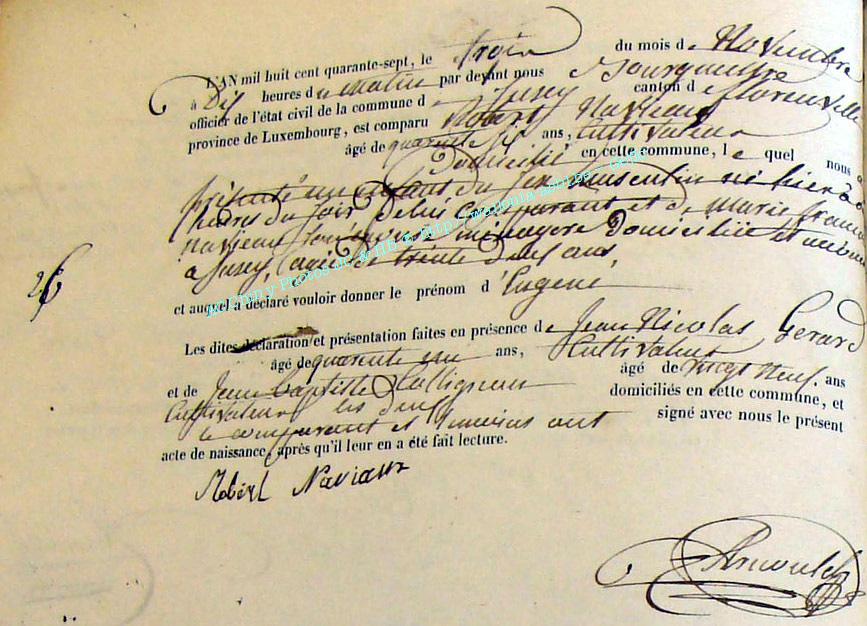 L'AN mil huit cent quarante-sept, le trois du mois de Novembre
à Dix heures du matin par devant nous Bourguemestre
officier de l'état civil de la commune de Suxy canton de florenville
province de Luxembourg, est comparu Robert Naviaux
âgé de quarante six ans, Cultivateur
Domicilié en cette commune, le quel nous a
présenté un enfant du sexe masculin né hier à
heures du soir de lui comparant et de marie
ménagere Domiciliée et
a Suxy, agée de trente deux ans,
26
et auquel a déclaré vouloir donner le prénom d'Eugene,
Les dites déclaration et présentation faites en présence de Jean Nicolas Gerard
âgé de quarante un ans, Cultivateur
et de Jean Baptiste Collignon âgé de vingt neuf. ans
Cultivateur les deux domiciliés en cette commune, et
le comparant et temoins ont signé avec nous le présent
acte de naissance, après qu'il leur en a été fait lecture.
Robert Naviaux